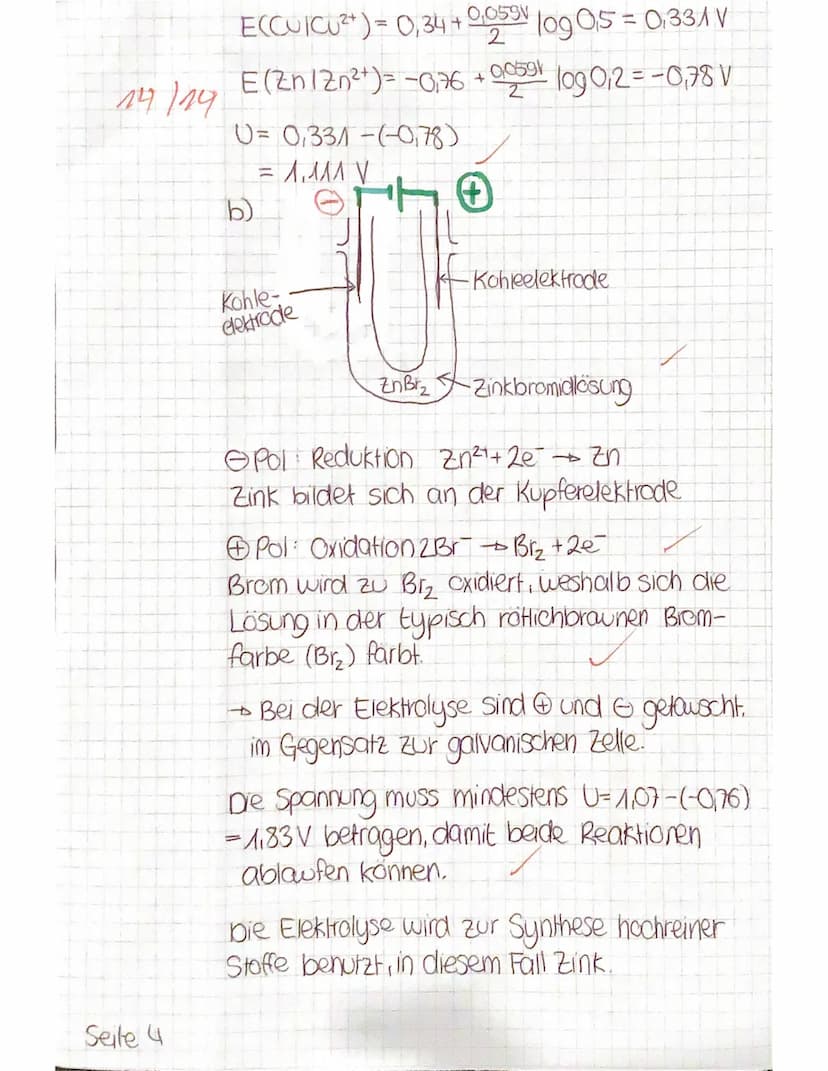 E(Cu|Cu²⁺) = 0,34 + 0,059V/2 log 0,5 = 0,331 V
E(Zn|Zn²⁺) = -0,76 + 0,059V/2 log 0,2 = -0,78 V
14/14
U = 0,331 - (-0,78)
= 1,111 V
b)
⊖ ⊕
Kohleelektrode
Kohle-
elektrode
ZnBr₂
Zinkbromidlösung
⊖ Pol: Reduktion Zn²⁺ + 2e⁻ → Zn
Zink bildet sich an der Kupferelektrode
⊕ Pol: Oxidation 2Br⁻ → Br₂ + 2e⁻
Brom wird zu Br₂ oxidiert, weshalb sich die
Lösung in der typisch rötlichbraunen Brom-
farbe (Br₂) färbt.
→ Bei der Elektrolyse sind ⊕ und ⊖ getauscht,
im Gegensatz zur galvanischen Zelle.
Die Spannung muss mindestens U = 1,07 - (-0,76)
= 1,83 V betragen, damit beide Reaktionen
ablaufen können.
Die Elektrolyse wird zur Synthese hochreiner
Stoffe benutzt, in diesem Fall Zink.
Seite 4